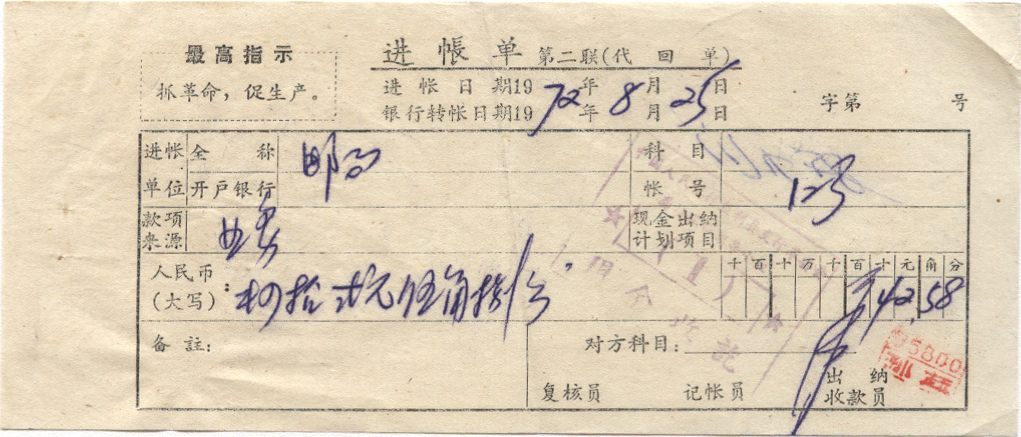 最高指示
抓革命，促生产。
进帐单 第二联(代回单)
进帐日期1972年8月25日
银行转帐日期19 年 月 日
字第 号
进帐单位 全称 邮局 科目
开户银行 帐号
款项来源 现金出纳计划项目
人民币(大写)：肆拾弍元伍角捌分
千百十万千百十元角分
42.58
备註：
对方科目：
复核员 记帐员 出纳收款员